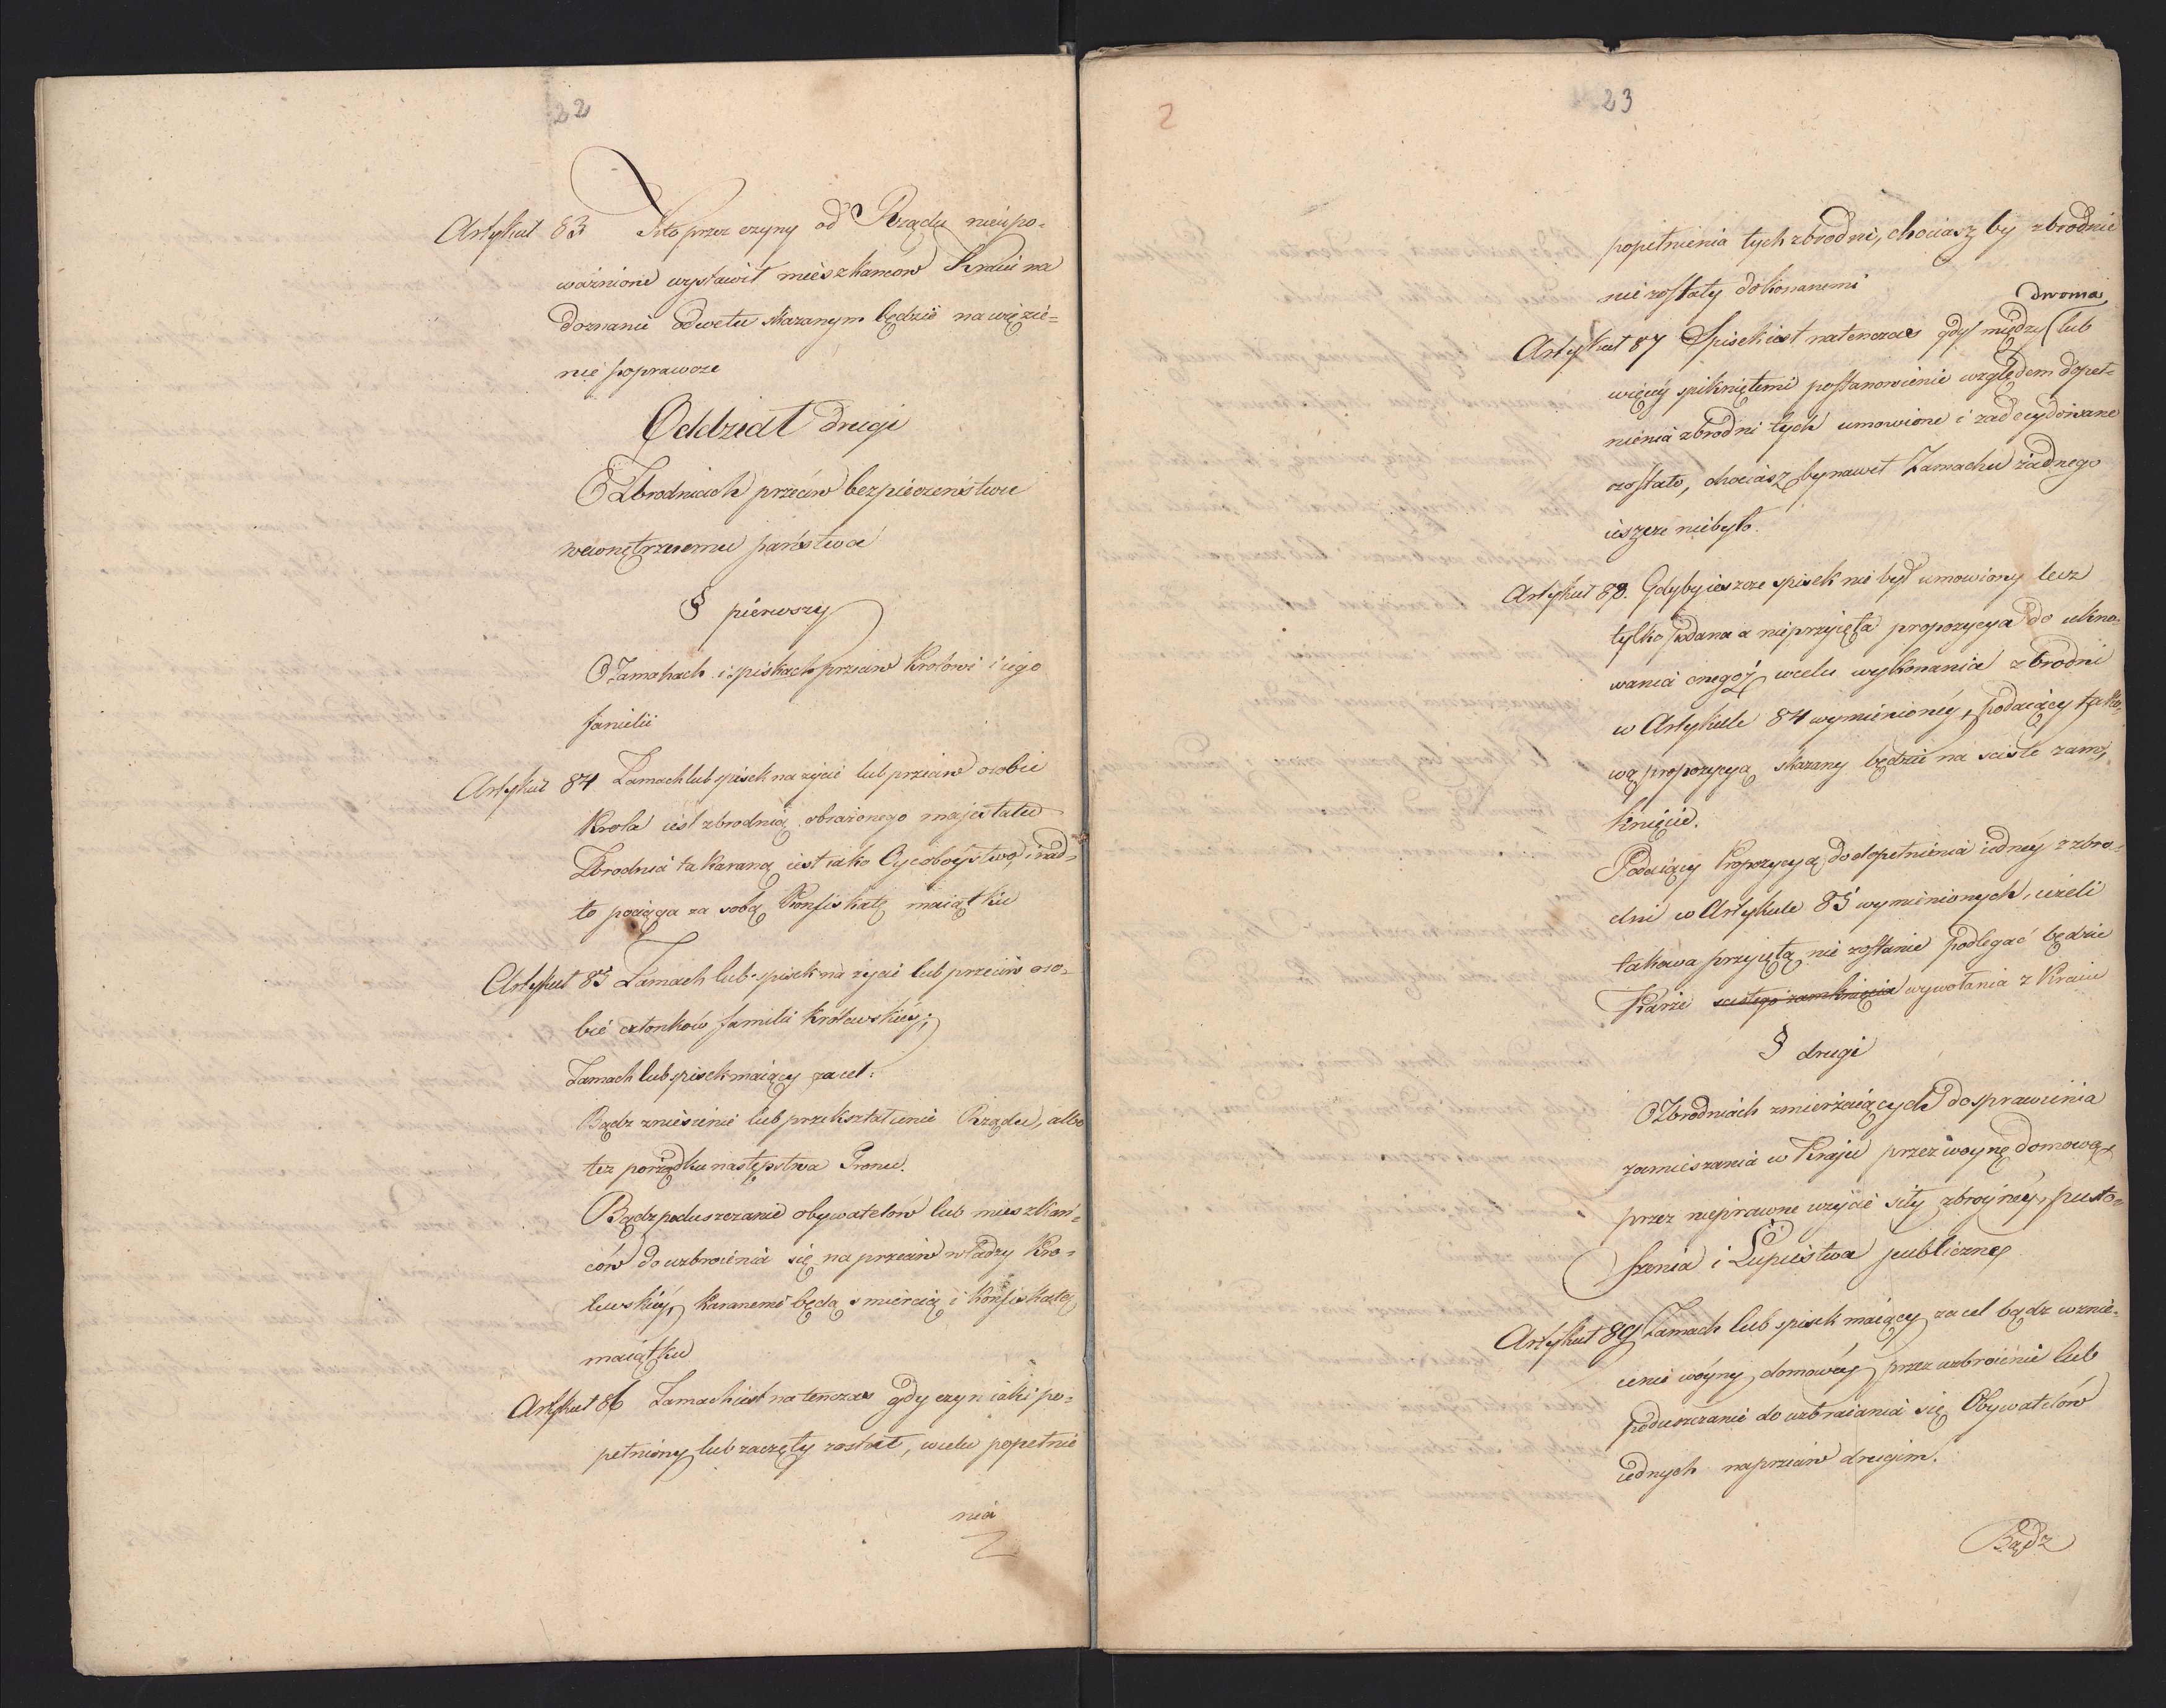 22
Artykuł 83 Kto przez czyny od Rządu nieupo-
ważnione wystawił mieszkańców Kraiu na
doznanie odwetu skazanym będzie na więzie=
nie poprawcze
Oddział drugi
O Zbrodniach przeciw bezpieczeństwu
wewnętrznemu państwa
§ pierwszy
O Zamahach i spiskach przeciw Krolowi i iego
familii
Artykuł 84 Zamach lub spisek na życie lub przeciw osobie
Krola iest zbrodnią obrażonego majestatu
Zbrodnia ta karaną iest iako Oycoboystwo, i nad=
to pociąga za sobą Konfiskatę maiątku
Artykuł 85 Zamach lub spisek na życie lub przeciw oso-
bie członków familii Krolewskiey;
Zamach lub spisek maiący za cel:
Bądz zniesienie lub przekształcenie Rządu, albo
też porządku następstwa Tronu.
Bądz poduszczanie obywatelów lub mieszkań=
ców do uzbroienia się na przeciw władzy Kro=
lewskiéy, karanemi będą smiercią i Konfiskatą
maiątku
Artykuł 86 Zamach iest natenczas gdy czyn iaki po=
pełniony lub zaczęty został, w celu popełnie
nia
2
23
popełnienia tych zbrodni, chociasz by zbrodnie
nie zostały dokonanemi
dwoma
Artykuł 87 Spisek iest natenczas gdy między lub
więcéy spikniętemi postanowienie względem dopeł=
nienia zbrodni tych umowione i zadecydowane
zostało, chociasz by nawet Zamachu żadnego
ieszcze niebyło.
Artykuł 88. Gdyby ieszcze spisek nie był umowiony lecz
tylko podana a nieprzyięta propozycya do ukno-
wania onegoż w celu wykonania zbrodni
w Artykule 84 wymienionéy, podaiący tako,
wą propozycyą skazany będzie na scisłe zam,
knięcie.
Podaiący Propozycyą do dopełnienia iednéy z zbro=
dni w Artykule 85 wymienionych, ieżeli
takowa przyiętą nie zostanie podlegać będzie
Karze scisłego zamknięcia wywołania z Kraiu
§ drugi
O Zbrodniach zmierzaiących do sprawienia
zamieszania w Kraju przez woynę domową
przez nieprawne użycie siły zbroynéy, pusto=
szenia i Łupiestwa publiczne
Artykuł 89 Zamach lub spisek maiący za cel bądz wznie=
cenie woyny domowéy przez uzbroienie lub
poduszczanie do uzbraiania się Obywatelów
iednych naprzeciw drugim.
Bądz